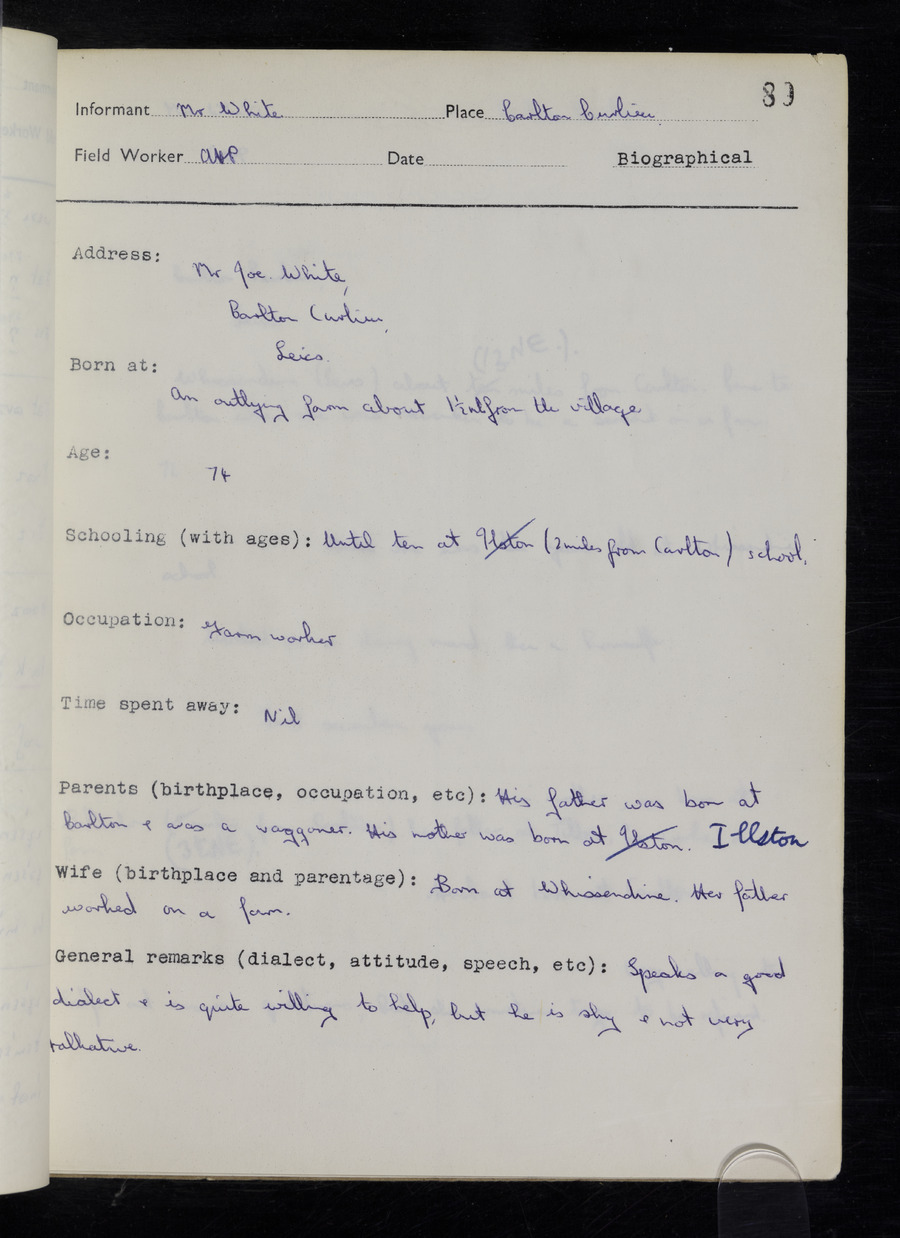 89
Informant Mr White Place Carlton Curlieu
Field Worker AHP Date Biographical
Address:
Mr Joe White,
Carlton Curlieu,
Leics.
Born at:
An outlying farm about 1½ml from the village
Age:
74
Schooling (with ages): Until ten at Ilston (2miles from Carlton) school.
Occupation: Farm worker
Time spent away: Nil
Parents (birthplace, occupation, etc): His father was born at
Carlton & was a waggoner. His mother was born at Ilston. Illston
Wife (birthplace and parentage): Born at Whissendine. Her father
worked on a farm.
General remarks (dialect, attitude, speech, etc): Speaks a good
dialect & is quite willing to help, but he is shy & not very
talkative.